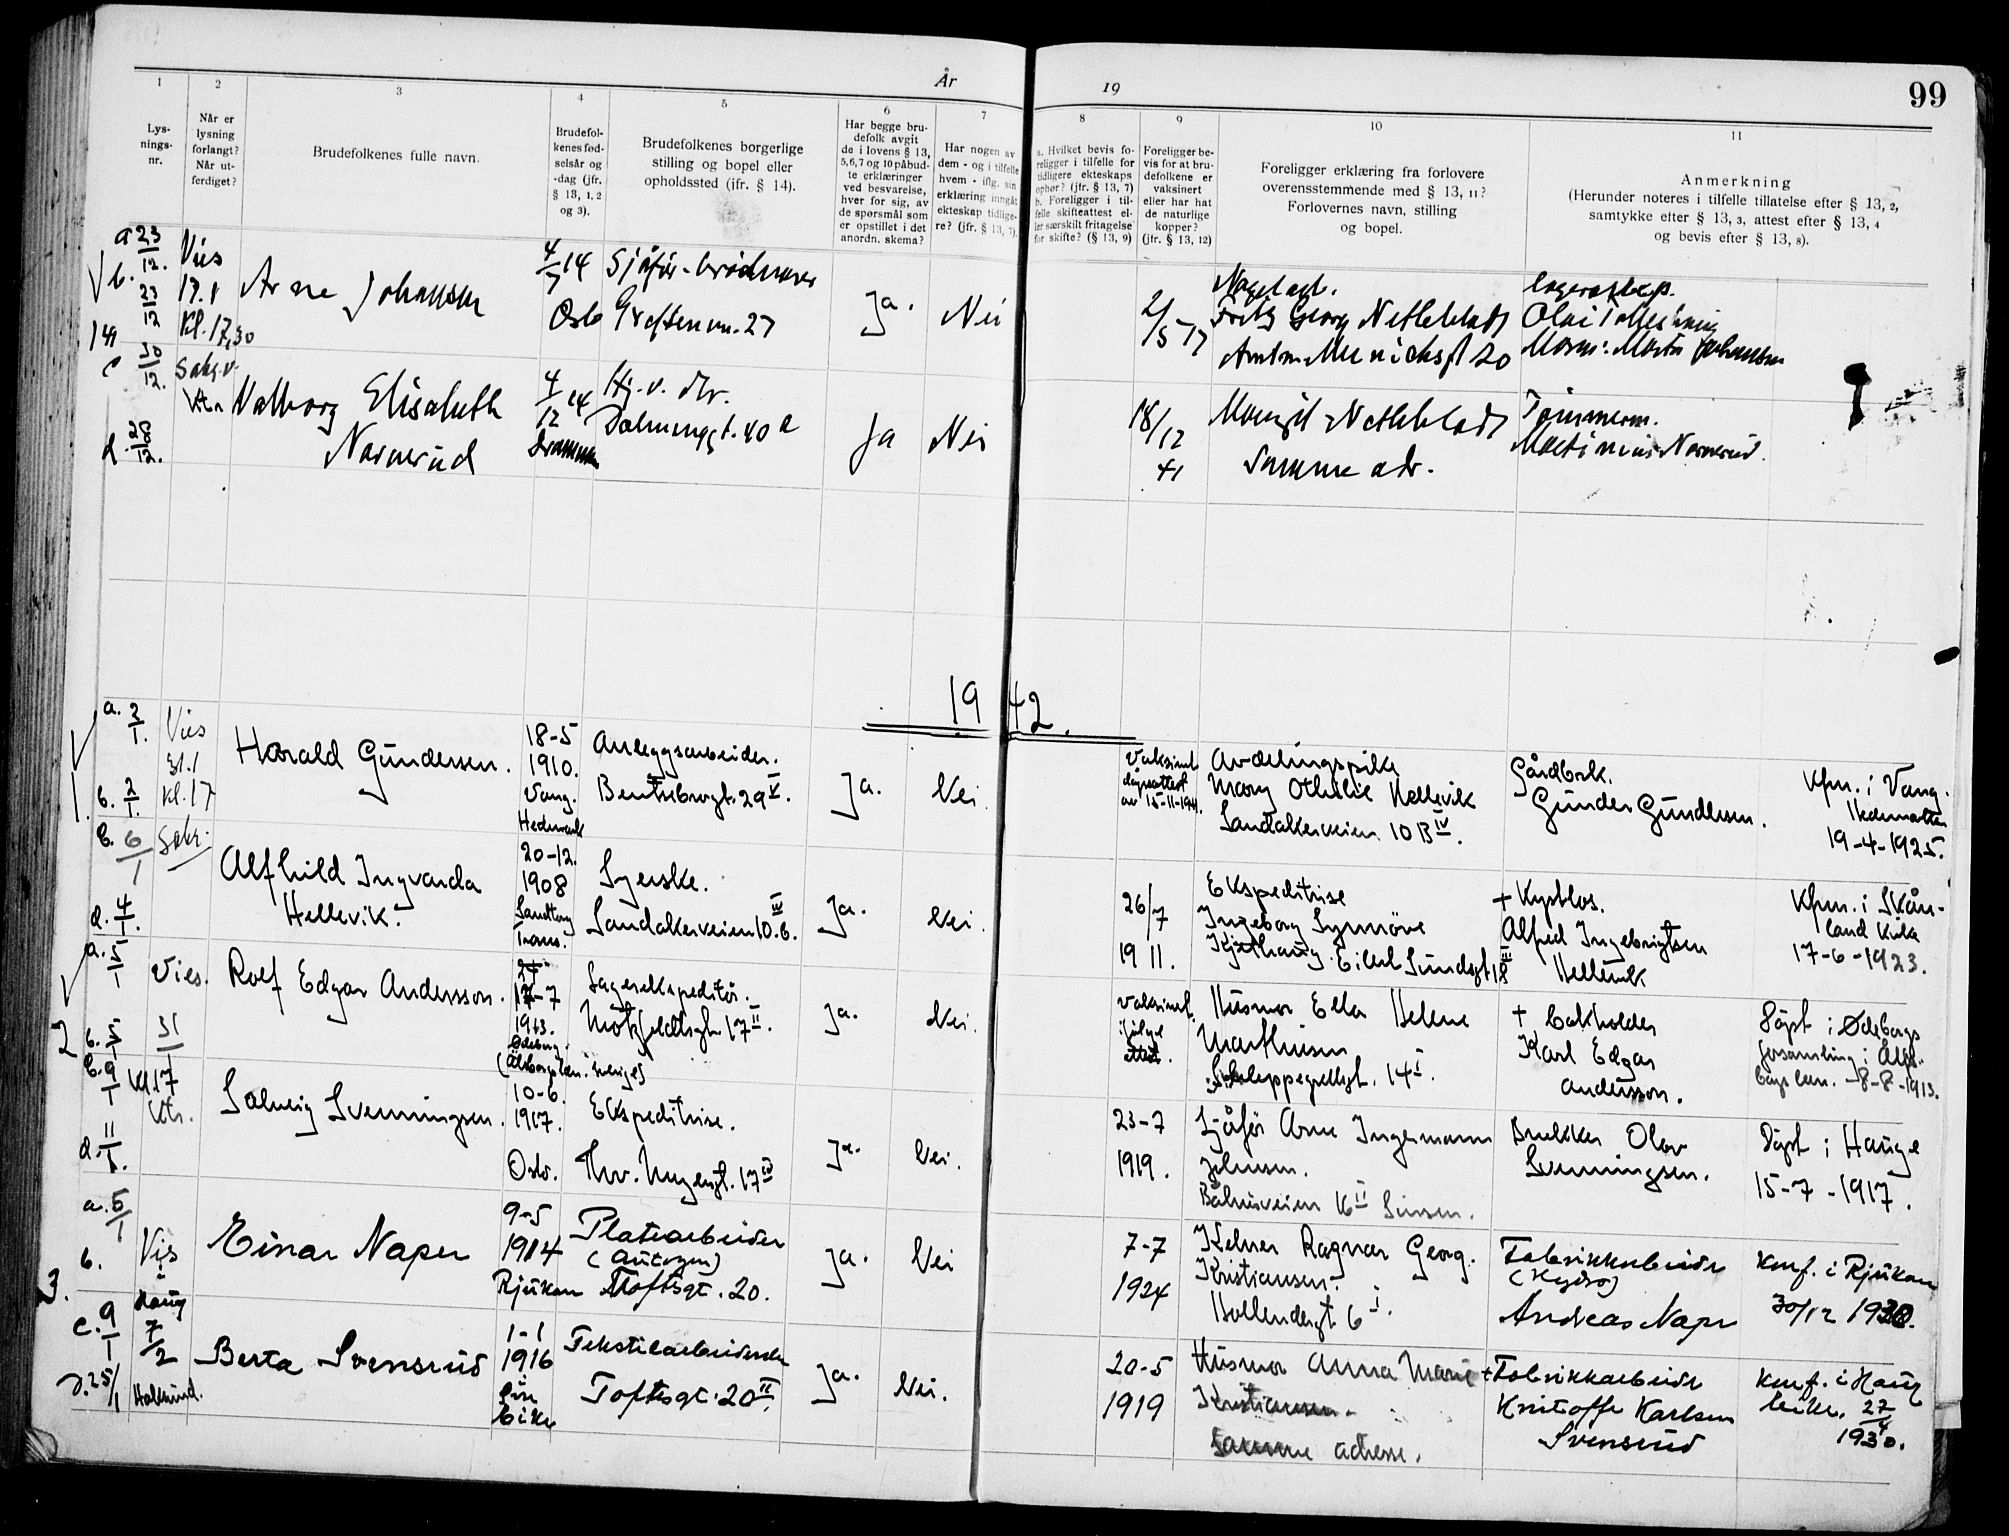 År
19
99
1
2
3
4
5
6
7
8
9
10
11
Lys-
nings-
nr.
Når er
lysning
forlangt?
Når ut-
ferdiget?
Brudefolkenes fulle navn.
Brudefol-
kenes fød-
selsår og
-dag (jfr.
§ 13, 1, 2
og 3).
Brudefolkenes borgerlige
stilling og bopel eller
opholdssted (jfr. § 14).
Har begge bru-
defolk avgit
de i lovens § 13,
5,6,7 og 10 påbud-
te erklæringer
ved besvarelse,
hver for sig, av
de spørsmål som
er opstillet i det
anordn. skema?
Har nogen av
dem - og i tilfelle
hvem - iflg. sin
erklæring inngåt
ekteskap tidlige-
re? (jfr. § 13, 7).
a. Hvilket bevis fo-
religger i tilfelle for
tidligere ekteskaps
ophør? (jfr. § 13, 7)
b. Foreligger i til-
felle skifteattest el-
ler særskilt fritagelse
for skifte? (§ 13, 9)
Foreligger be-
vis for at bru-
defolkene er
vaksinert
eller har hat
de naturlige
kopper?
(jfr. § 13, 12)
Foreligger erklæring fra forlovere
overensstemmende med § 13, 11?
Forlovernes navn, stilling
og bopel.
Anmerkning
(Herunder noteres i tilfelle tillatelse efter § 13, 2,
samtykke efter § 13, 3, attest efter § 13, 4
og bevis efter § 13, 8).
a 23/12.
b. 23/12
c 30/12.
Vies
17.1
Kl. 17,30
Sakr.
Arne Johansen
4/7 14
Oslo
Grefsenvn. 27
Ja.
Nei
2/5 17
Fritz Georg Netleblads
Amtm. Meinichsgt 20
Morin: Martin Johansen
Valborg Elisabeth
Nornerud
4/12 14
Drammen
Hj. v. dr.
Dælenenggt. 40 a
Ja
Nei
18/12
41
Margit Netleblads
Samme adr.
Tømmerm.
Martinius Nornerud.
1942.
1.
a. 2/1.
b. 2/1.
c. 6/1
d. 4/1.
Vies
31.1
Kl. 17
Sakr.
Harald Gundersen.
18-5
1910.
Vang.
Hedmark
Anleggsarbeider.
Bentsebrogt. 29 V.
Ja.
Nei.
Vaksinert
ifølge attest
av 15-11-1941.
Avdelingspike
Mary Othilie Hellevik
Sandakerveien 10 B IV.
Gårdbrk.
Gunder Gundersen.
Kfm. i Vang.
Hedmarken
19-4-1925.
Alfhild Ingvarda
Hellevik.
20-12.
1908
Sandtorg
Troms.
Syerske.
Sandakerveien 10. B. IV
Ja.
Nei.
26/7
1911.
Ekspeditrise
Ingeborg Synnöve
Kjelhaug. Eilert Sundsgt 18 III
+ Kystlos.
Alfred Ingebrigtsen
Hellevik
Kfm. i Skån-
land kirke
17-6-1923.
2
a. 5/1
b. 5/1
c. 9/1
d. 11/1.
Vies.
31/1
Kl. 17
Rolf Edgar Andersson.
17-7
1913.
Ødeborg
(Älvborgslän. Sverige)
Lagerekspeditör.
Motzfeldtsgt. 17 II.
Ja.
Nei.
Vaksinert.
ifølge
attest.
Husmor Ella Helene
Marthinsen
Schleppegrellsgt. 14 I.
+ Karl Edgar
Andersson.
Döpt i Ødeborgs
forsamling i Älfs-
borgs len. 8-8-1913.
Solveig Svenningsen.
10-6.
1917.
Oslo.
Ekspeditrise.
Thv. Meyersgt. 17 IV
Ja.
Nei.
23-7
1919.
Sjåför Arne Ingemann
Johnsen.
Bålerudveien 16 II Sinsen.
Snekker Olav
Svenningsen.
Döpt i Hauge
15-7-1917.
3.
a. 5/1
b.
c. 9/1
d. 25/1
Vis
i
Haug
7/2
Hokksund.
Einar Naper
9-5
1914
Rjukan
Platearbeider
(Autogen)
Toftesgt. 20.
Ja.
Nei
7-7
1924
Kelner Ragnar Georg.
Kristiansen.
Hollendergt 6 I.
Fabrikkarbeider
(Hydro)
Andreas Naper
Konf. i Rjukan
30/12 1930.
Berta Svensrud
1-1
1916
Eiker
Tekstilarbeiderske
Toftesgt. 20 II.
Ja.
Nei.
20-5
1919
Husmor Anna Marie
Kristiansen.
Samme adresse.
+ Fabrikkarbeider
Kristoffer Karlsen
Svensrud
Konf. i Haug
Eiker. 27/4
1930.